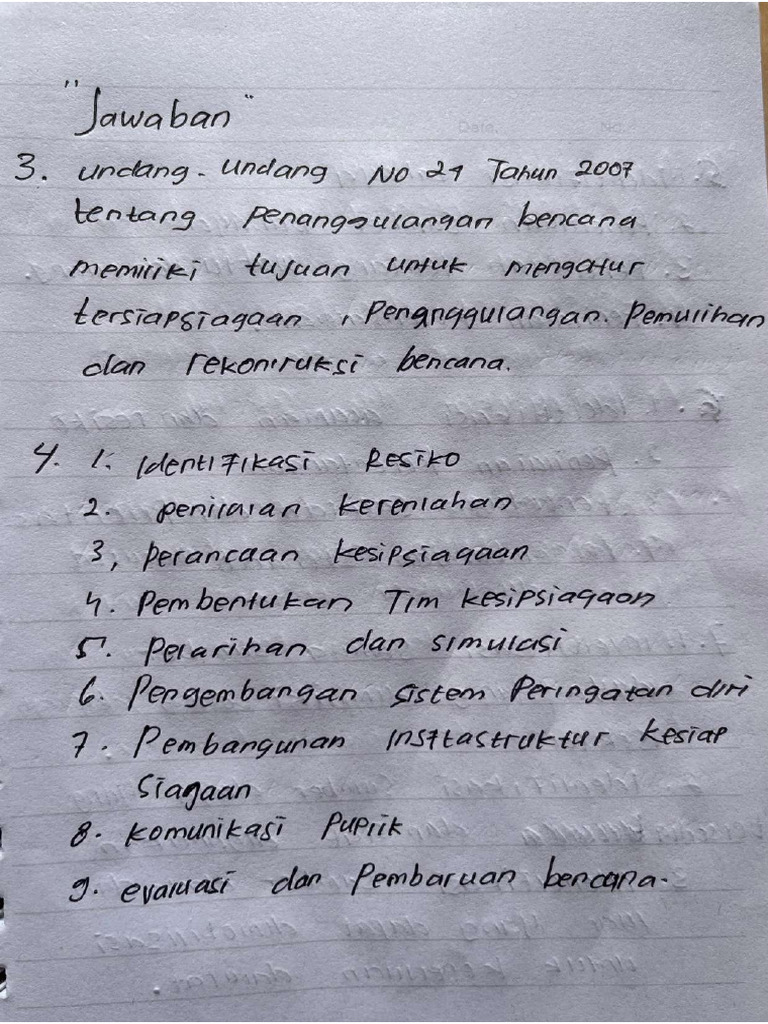 "Jawaban"
Date. No.
3. undang-undang No 24 Tahun 2007
tentang penanggulangan bencana
memiliki tujuan untuk mengatur
tersiapsiagaan, Penanggulangan. Pemulihan
dan rekontruksi bencana.
4. 1. Identifikasi Resiko
2. penilaian kerentahan
3, perancaan kesipsiagaan
4. Pembentukan Tim kesipsiagaan
5. pelatihan dan simulasi
6. Pengembangan sistem Peringatan diri
7. Pembangunan insftastruktur kesiap
siagaan
8. komunikasi Puplik
9. evaluasi dan Pembaruan bencana.